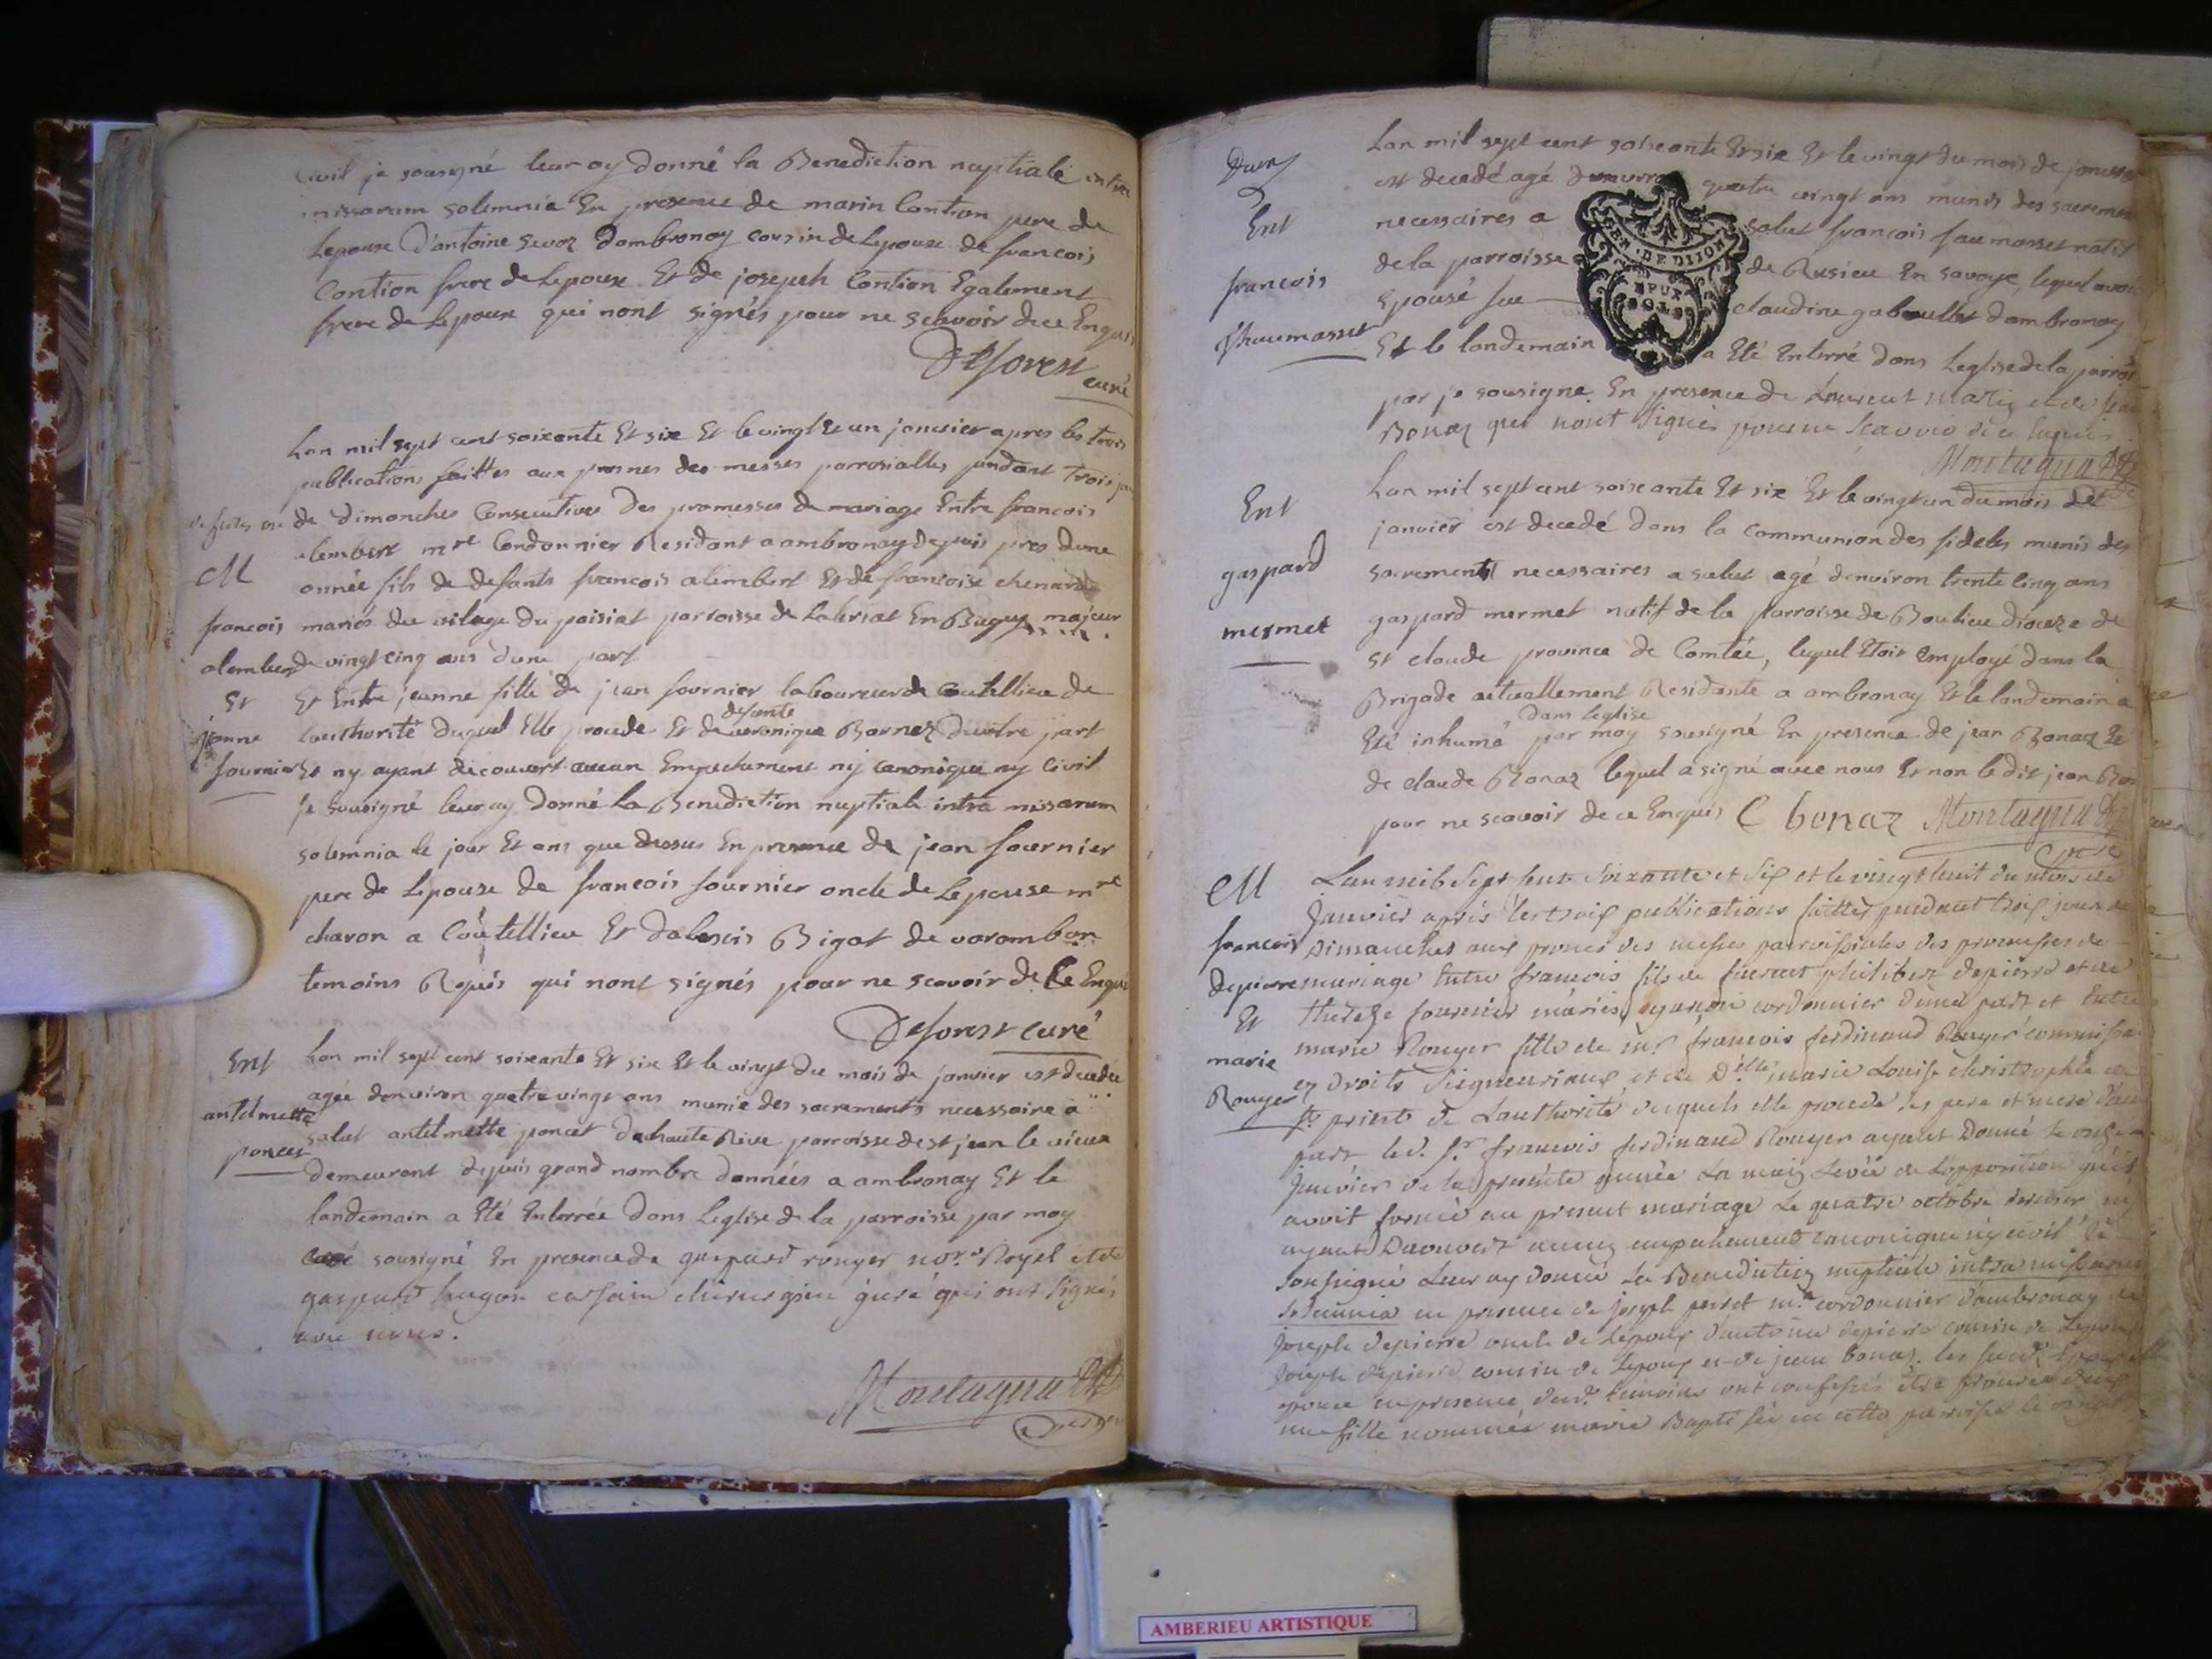 civil je sousigné leur ay donné la Benediction nuptiale intra
missarum solemnia En presence de marin Contion pere de
Lepouse d'antoine sevoz dambronay cousin de Lepouse de francois
Contion frere de Lepouse Et de joseph Contion Egalement
frere de Lepouse qui nont signés pour ne scavoir de ce Enquis
Deforest curé
Lan mil sept cent soixante Et six Et le vingt Et un janvier apres les trois
publications faittes aux prosnes des messes parroisialles pendant trois jours
de dimanches Consecutives des promesses de mariage Entre francois
alembert mre Cordonnier Residant a ambronay depuis pres dune
année fils de defunts francois alembert Et de francoise chenard
mariés du vilage du poisiat parroisse de Labersat En Bugey majeur
de vingt cinq ans d'une part
Et Entre jeanne fille de jean fournier laboureur de Coutellieu de
lauthorité duquel Elle procede Et de defunte veronique Bornez dautre part
Et ny ayant decouvert aucun Empechement ny canonique ny Civil
je sousigné leur ay donné La Benediction nuptiale intra missarum
solemnia le jour Et ans que dessus En presence de jean fournier
pere de Lepouse de francois fournier oncle de Lepouse mre
charon a Coutellieu Et dalexis Bigot de varambon
temoins Requis qui nont signés pour ne scavoir de Ce Enquis
Deforest curé
M
francois
alembert
Et
jeanne
fournier
Ent
antelmette
poncet
Lan mil sept cent soixante Et six Et le vingt du mois de janvier est decedée
agée denviron quatre vingt ans munie des sacrements necessaire a
salut antelmette poncet de haute Rive parroisse de st jean le vieux
demeurant depuis grand nombre dannées a ambronay Et le
landemain a Eté Enterrée dans Leglise de la parroisse par moy
curé sousigné En presence de gaspard rouyer nore Royal et de
gaspard hugon chirurgien juré qui ont signés
avec nous.
Montagnat
Ent
francois
fhaumasset
Lan mil sept cent soixante Et six Et le vingt du mois de janvier
est decedé agé denviron quatre vingt ans munis des sacremens
necessaires a salut francois faumasset natif
de la parroisse de Rusieu En savoye, lequel avoit
Epousé fue claudine gaboullet dambronay
Et le landemain a Eté Enterré dans Leglise de la parroisse
par je sousigne En presence de Laurent Martin et de jean
Bonaz qui nont signés pour ne scavoir de ce Enquis
GEN. DE DIJON
Montagnat
Ent
gaspard
mermet
Lan mil sept cent soixante Et six Et le vingt un du mois de
janvier est decedé dans la communion des fideles munis des
sacrements necessaires a salut agé denviron trente cinq ans
gaspard mermet natif de la parroisse de Boulieu dioceze de
st claude province de Comtée, lequel Etoit employé dans la
Brigade actuellement Residante a ambronay Et le landemain a
Eté inhumé dans leglise par moy sousigné En presence de jean Bonaz Et
de claude Bonaz lequel a signé avec nous Et non le dit jean Bonaz
pour ne scavoir de ce Enquis C bonaz Montagnat
M
francois
depierre
Et
marie
Rouyer
Lan mil sept cent soixante et six et le vingt huit du mois de
Janvier après les trois publications faittes pendant trois jours de
Dimanches aux prones des messes parroissiales des promesses de
mariage Entre francois fils de philibert depierre et de
therese fournier mariés, garçon cordonnier d'une part et Entre
marie Rouyer fille de mr. francois ferdinand Rouyer commissaire
en Droits Seigneuriaux, et de Dlle marie Louise christophle de
st. priest de Lauthorité desquels elle procede ses pere et mere d'autre
part led. sr. francois ferdinand Rouyer ayant Donné le onze
janvier de la presente année La main levée de Lopposition qu'il
avoit formée au present mariage Le quatre octobre dernier ny
ayant Decouvert aucun empechement canonique ny civil Je
sousigné Leur ay Donné La Benediction nuptiale intra missarum
solemnia en presence de joseph perret mre cordonnier d'ambronay de
joseph depierre oncle de Lepoux d'antoine depierre cousin de Lepoux
joseph depierre cousin de Lepoux et de jean bonaz. les susd. Epoux et
epouse en presence desd. temoins ont confessés etre procréé d'eux
une fille nommée marie Baptisée en cette parroisse le vingt
AMBERIEU ARTISTIQUE